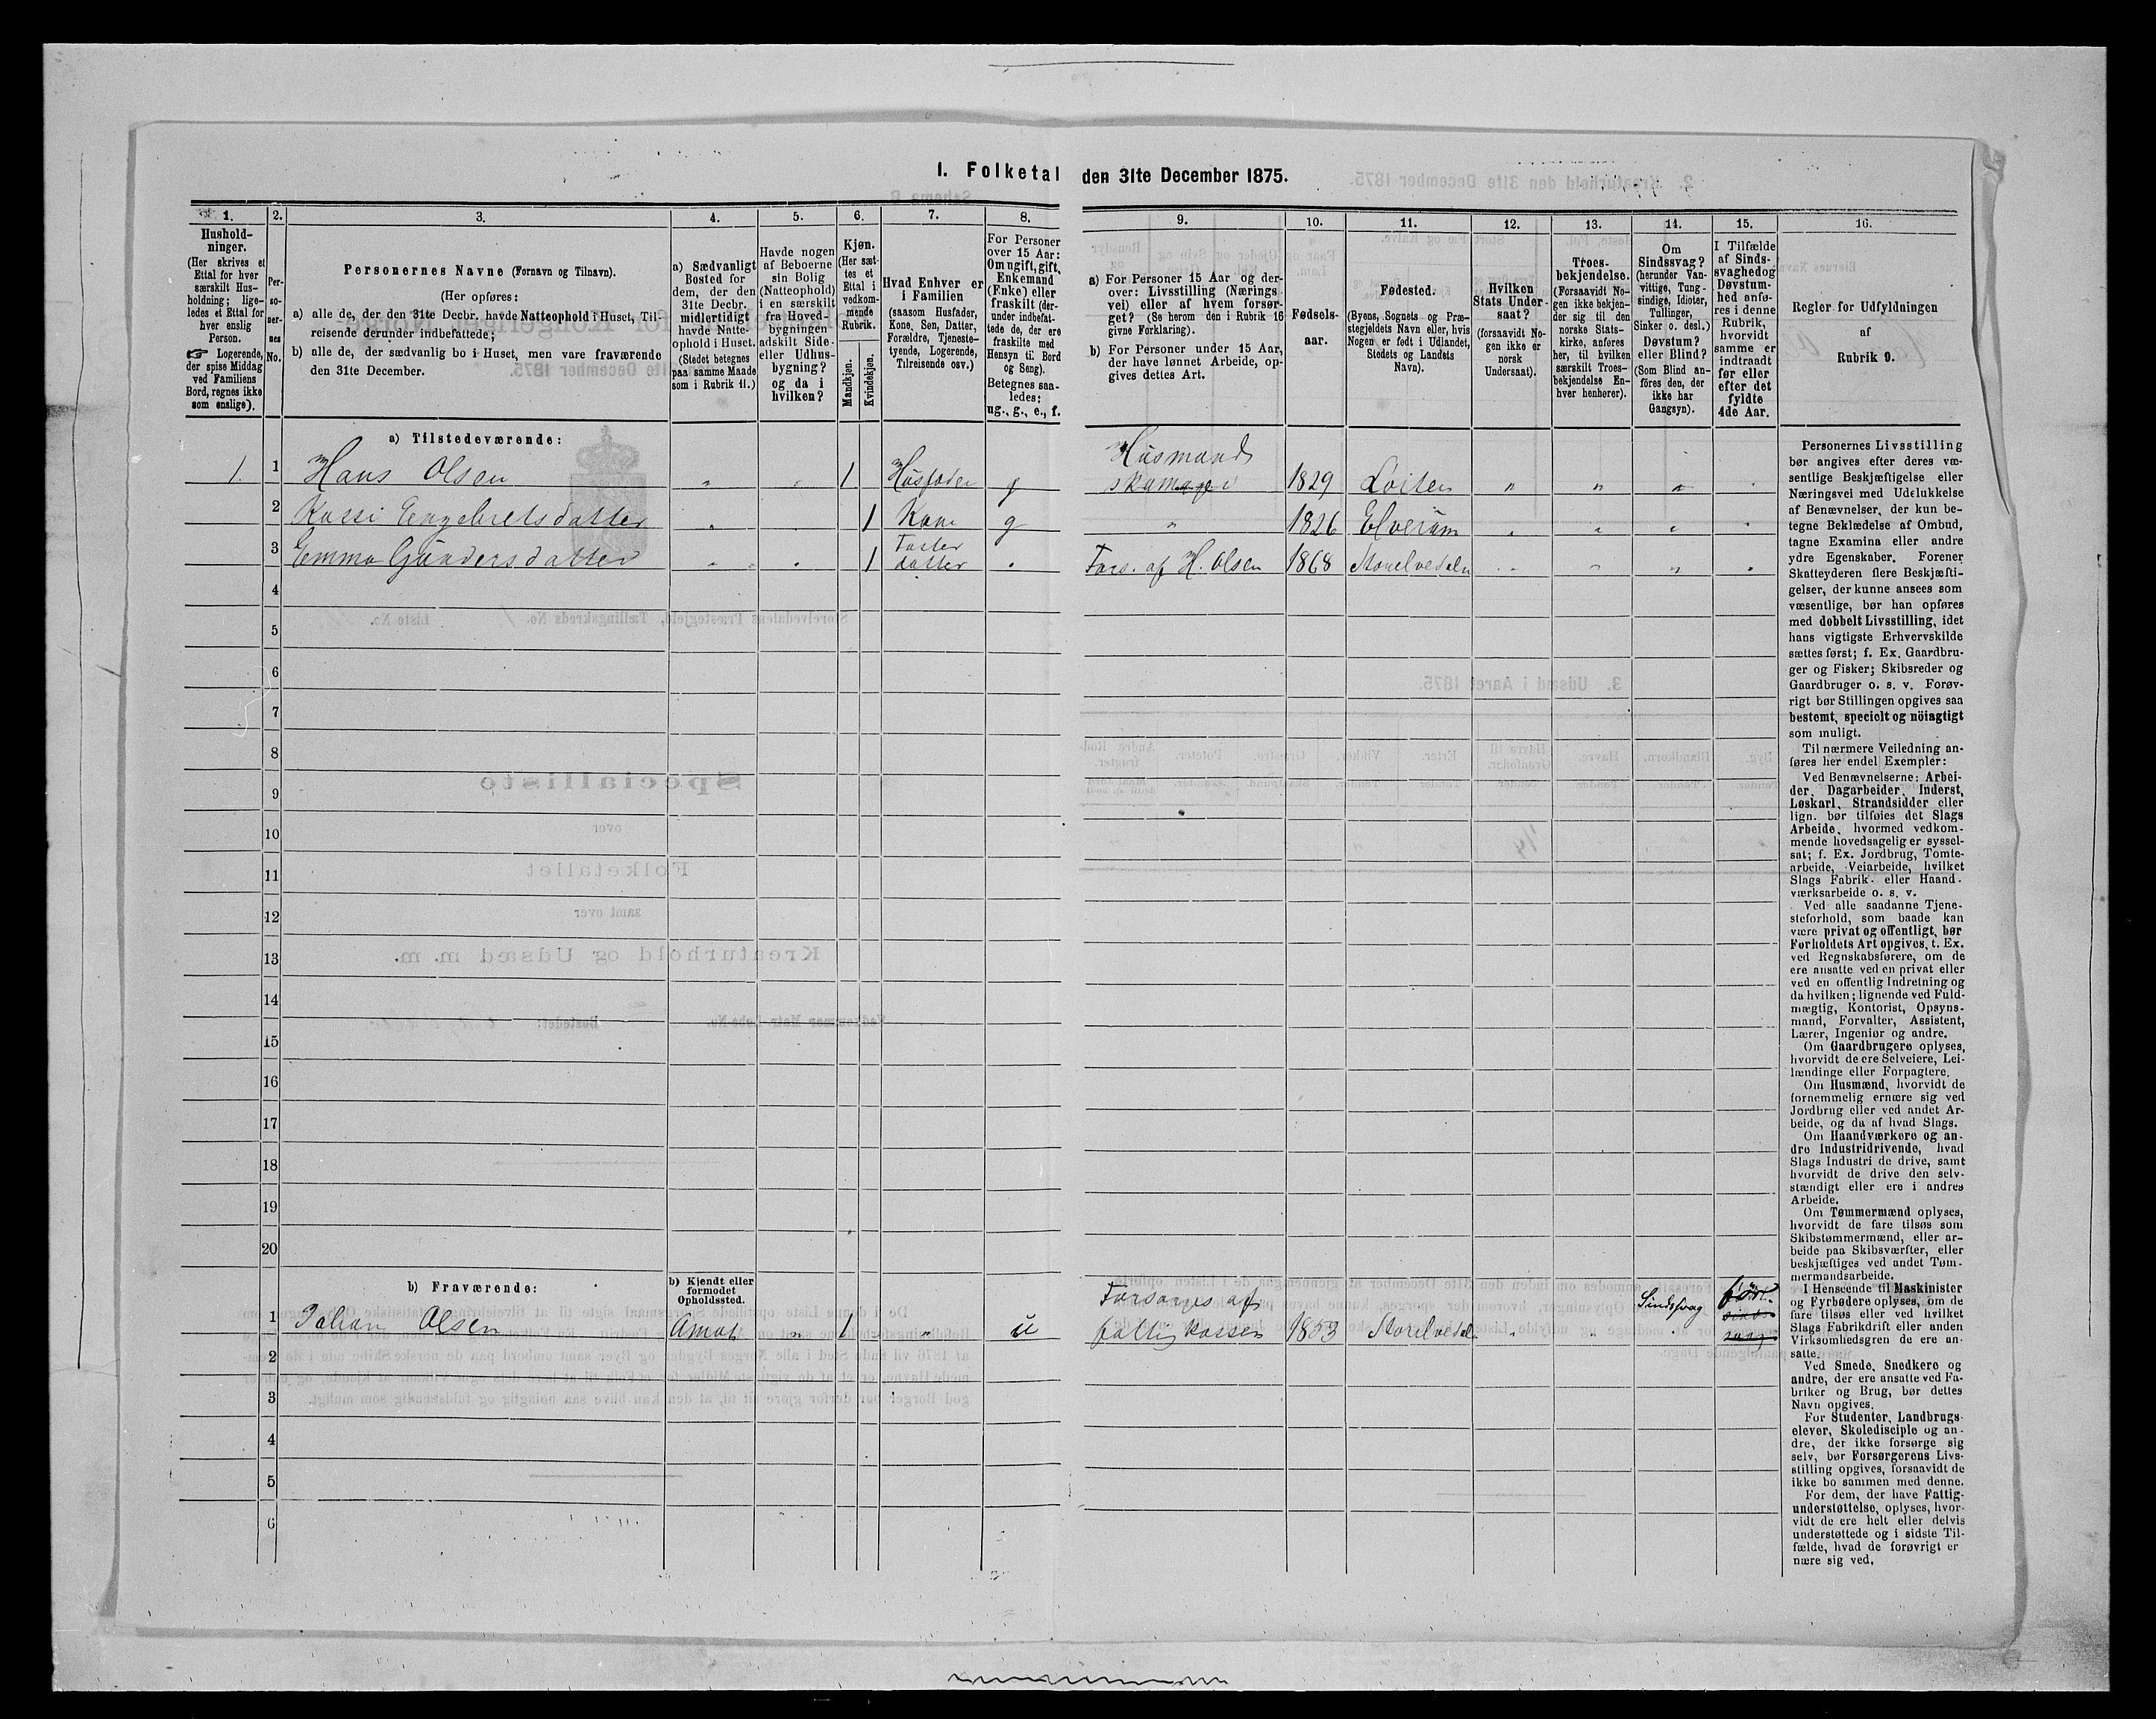 1. Folketal den 31te December 1875.
1. 2. 3. 4. 5. 6. 7. 8. 9. 10. 11. 12. 13. 14. 15. 16.
Hushold-
ninger.
(Her skrives et
Ettal for hver
særskilt Hus-
holdning; lige-
ledes et Ettal for
hver enslig
Person.
☞ Logerende,
der spise Middag
ved Familiens
Bord, regnes ikke
som enslige).
Per-
so-
ner-
nes
No.
Personernes Navne (Fornavn og Tilnavn).
(Her opføres:
a) alle de, der den 31te Decbr. havde Natteophold i Huset, Til-
reisende derunder indbefattede;
b) alle de, der sædvanlig bo i Huset, men vare fraværende
den 31te December.
a) Sædvanligt
Bosted for
dem, der den
31te Decbr.
midlertidigt
havde Natte-
ophold i Huset.
(Stedet betegnes
paa samme Maade
som i Rubrik 11.)
Havde nogen
af Beboerne
sin Bolig
(Natteophold)
i en særskilt
fra Hoved-
bygningen
adskilt Side-
eller Udhus-
bygning?
og da i
hvilken?
Kjøn.
(Her sæt-
tes et
Ettal i
vedkom-
mende
Rubrik.
Mandkjøn.
Kvindekjøn.
Hvad Enhver er
i Familien
(saasom Husfader,
Kone, Søn, Datter,
Forældre, Tjeneste-
tyende, Logerende,
Tilreisende osv.)
For Personer
over 15 Aar:
Om ugift, gift,
Enkemand
(Enke) eller
fraskilt (der-
under indbefat-
tede de, der ere
fraskilte med
Hensyn til Bord
og Seng).
Betegnes saa-
ledes:
ug., g., e., f.
a) For Personer 15 Aar og der-
over: Livsstilling (Nærings-
vei) eller af hvem forsør-
get? (Se herom den i Rubrik 16
givne Forklaring).
b) For Personer under 15 Aar,
der have lønnet Arbeide, op-
gives dettes Art.
Fødsels-
aar.
Fødested.
(Byens, Sognets og Præ-
stegjeldets Navn eller, hvis
Nogen er født i Udlandet,
Stedets og Landets
Navn).
Hvilken
Stats Under-
saat?
(forsaavidt No-
gen ikke er
norsk
Undersaat).
Troes-
bekjendelse.
(Forsaavidt No-
gen ikke bekjen-
der sig til den
norske Stats-
kirke, anføres
her, til hvilken
særskilt Troes-
bekjendelse En-
hver henhører).
Om
Sindssvag?
(herunder Van-
vittige, Tung-
sindige, Idioter,
Tullinger,
Sinker o. desl.)
Døvstum?
eller Blind?
(Som Blind an-
føres den, der
ikke har
Gangsyn).
I Tilfælde
af Sinds-
svaghed og
Døvstum-
hed anfø-
res i denne
Rubrik,
hvorvidt
samme er
indtraadt
før eller
efter det
fyldte
4de Aar.
Regler for Udfyldningen
af
Rubrik 9.
a) Tilstedeværende:
Husmand
1. 1 Hans Olsen „ „ 1 Husfader g skomager 1829 Løiten „ „ „ „
2 Kassi Engebretsdatter „ „ 1 Kone g „ 1826 Elverum „ „ „ „
Foster
3 Emma Gundersdatter „ „ 1 datter „ Fors. af H. Olsen 1868 Storelvedalen „ „ „ „
4
5
6
7
8
9
10
11
12
13
14
15
16
17
18
19
20
b) Fraværende:
b) Kjendt eller
formodet
Opholdssted.
Forsørges af før.
1 Johan Olsen Amot „ 1 „ u fattig Kassen 1853 Storelvedal. „ „ Sindssvag sinds-
svag
2
3
4
5
6
Personernes Livsstilling
bør angives efter deres væ-
sentlige Beskjæftigelse eller
Næringsvei med Udelukkelse
af Benævnelser, der kun be-
tegne Beklædelse af Ombud,
tagne Examina eller andre
ydre Egenskaber. Forener
Skatteyderen flere Beskjæfti-
gelser, der kunne ansees som
væsentlige, bør han opføres
med dobbelt Livsstilling, idet
hans vigtigste Erhvervskilde
sættes først; f. Ex. Gaardbru-
ger og Fisker; Skibsreder og
Gaardbruger o. s. v. Forøv-
rigt bør Stillingen opgives saa
bestemt, specielt og nöiagtigt
som muligt.
Til nærmere Veiledning an-
føres her endel Exempler:
Ved Benævnelserne: Arbei-
der, Dagarbeider, Inderst,
Løskarl, Strandsidder eller
lign. bør tilføies det Slags
Arbeide, hvormed vedkom-
mende hovedsagelig er syssel-
sat; f. Ex. Jordbrug, Tomte-
arbeide, Veiarbeide, hvilket
Slags Fabrik- eller Haand-
værksarbeide o. s. v.
Ved alle saadanne Tjene-
steforhold, som baade kan
være privat og offentligt, bør
Forholdets Art opgives, t. Ex.
ved Regnskabsførere, om de
ere ansatte ved en privat eller
ved en offentlig Indretning og
da hvilken; lignende ved Fuld-
mægtig, Kontorist, Opsyns-
mand, Forvalter, Assistent,
Lærer, Ingeniør og andre.
Om Gaardbrugere oplyses,
hvorvidt de ere Selveiere, Lei-
lændinge eller Forpagtere.
Om Husmænd, hvorvidt de
fornemmelig ernære sig ved
Jordbrug eller ved andet Ar-
beide, og da af hvad Slags.
Om Haandværkere og an-
dre Industridrivende, hvad
Slags Industri de drive, samt
hvorvidt de drive den selv-
stændigt eller ere i andres
Arbeide.
Om Tømmermænd oplyses,
hvorvidt de fare tilsøs som
Skibstømmermænd, eller ar-
beide paa Skibsværfter, eller
beskjæftiges ved andet Tøm-
mermandsarbeide.
I Henseende til Maskinister
og Fyrbødere oplyses, om de
fare tilsøs eller ved hvilket
Slags Fabrikdrift eller anden
Virksomhedsgren de ere an-
satte.
Ved Smede, Snedkere og
andre, der ere ansatte ved Fa-
briker og Brug, bør dettes
Navn opgives.
For Studenter, Landbrugs-
elever, Skoledisciple og an-
dre, der ikke forsørge sig
selv, bør Forsørgerens Livs-
stilling opgives, forsaavidt de
ikke bo sammen med denne.
For dem, der have Fattig-
understøttelse, oplyses, hvor-
vidt de ere helt eller delvis
understøttede og i sidste Til-
fælde, hvad de forøvrigt er
nære sig ved.